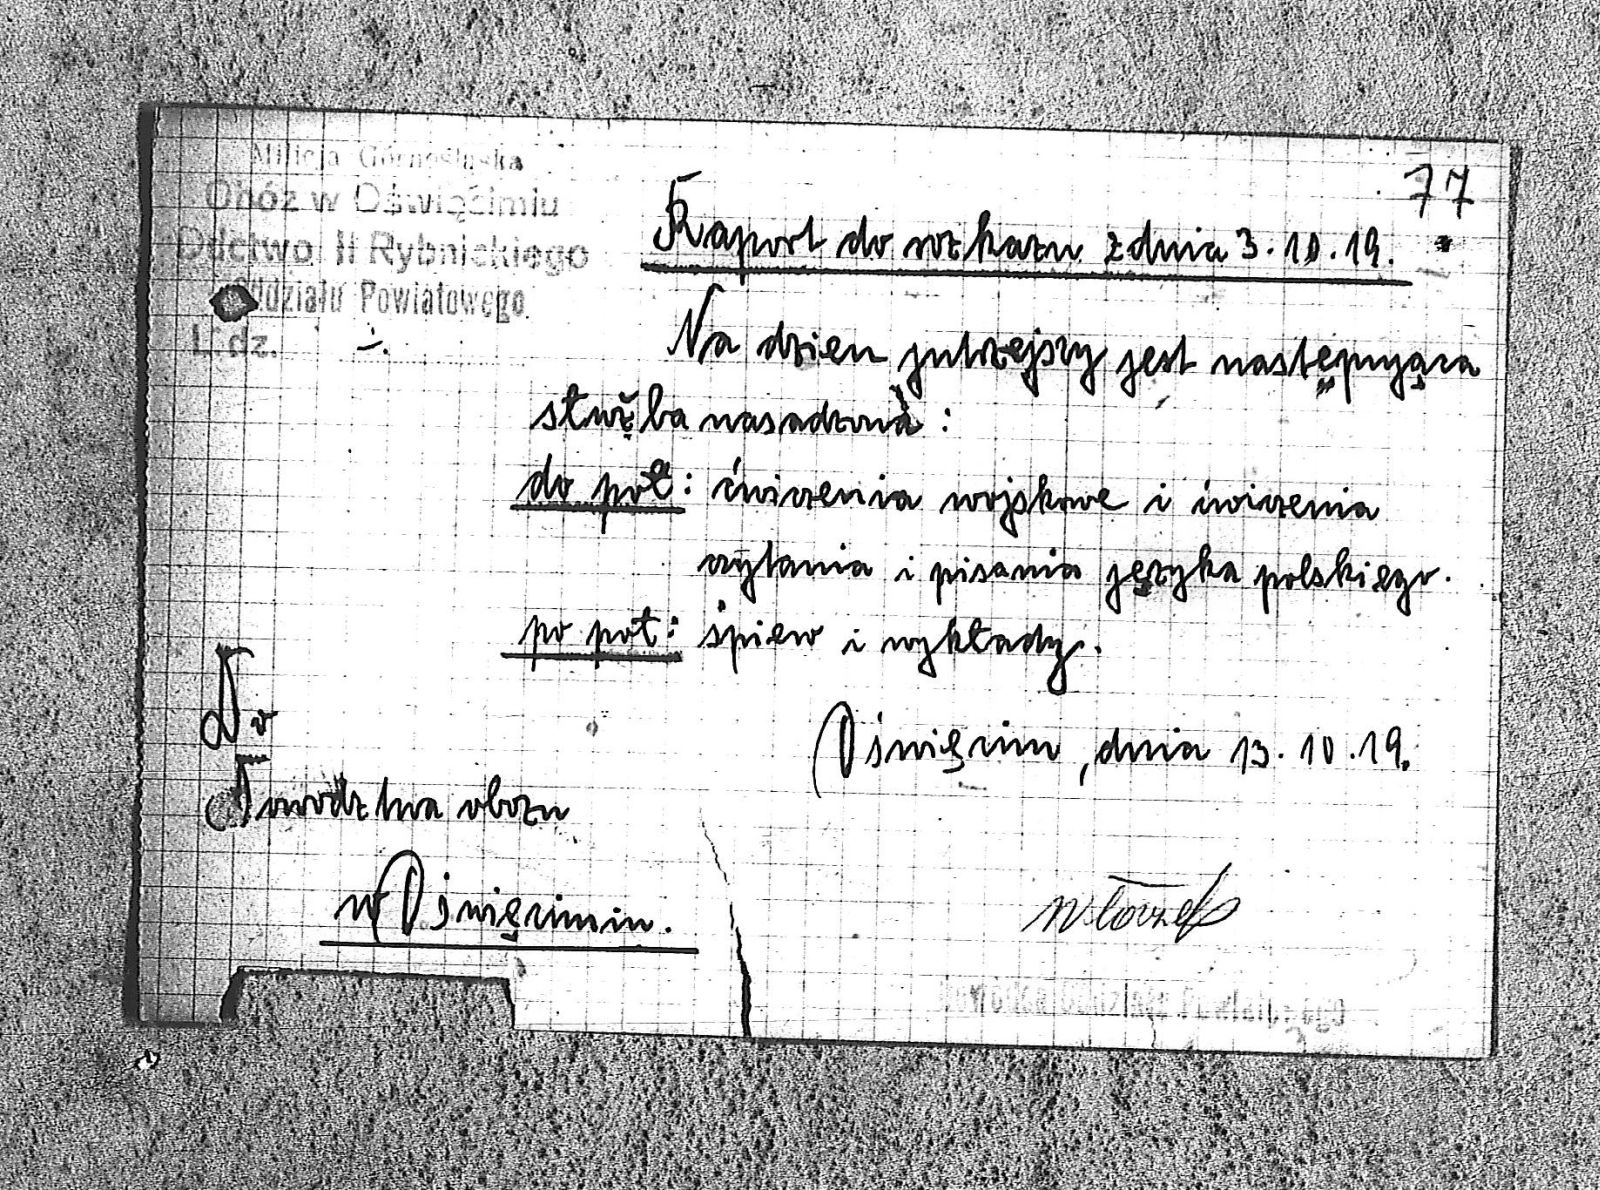 Milicja Górnośląska
Obóz w Oświęcimiu
Ddctwo II Rybnickiego
Oddziału Powiatowego
L. dz. -/.
77
Raport do rozkazu z dnia 3.10.19.
Na dzien jutrzejszy jest następująca
stużba nasadzona:
do poł: ćwiczenia wojskowe i ćwiczenia
czytania i pisania języka polskiego.
po poł: śpiew i wykłady.
Oświęcim, dnia 13.10.19.
Do
Dowodztwa obozu
w Oświęcimiu.